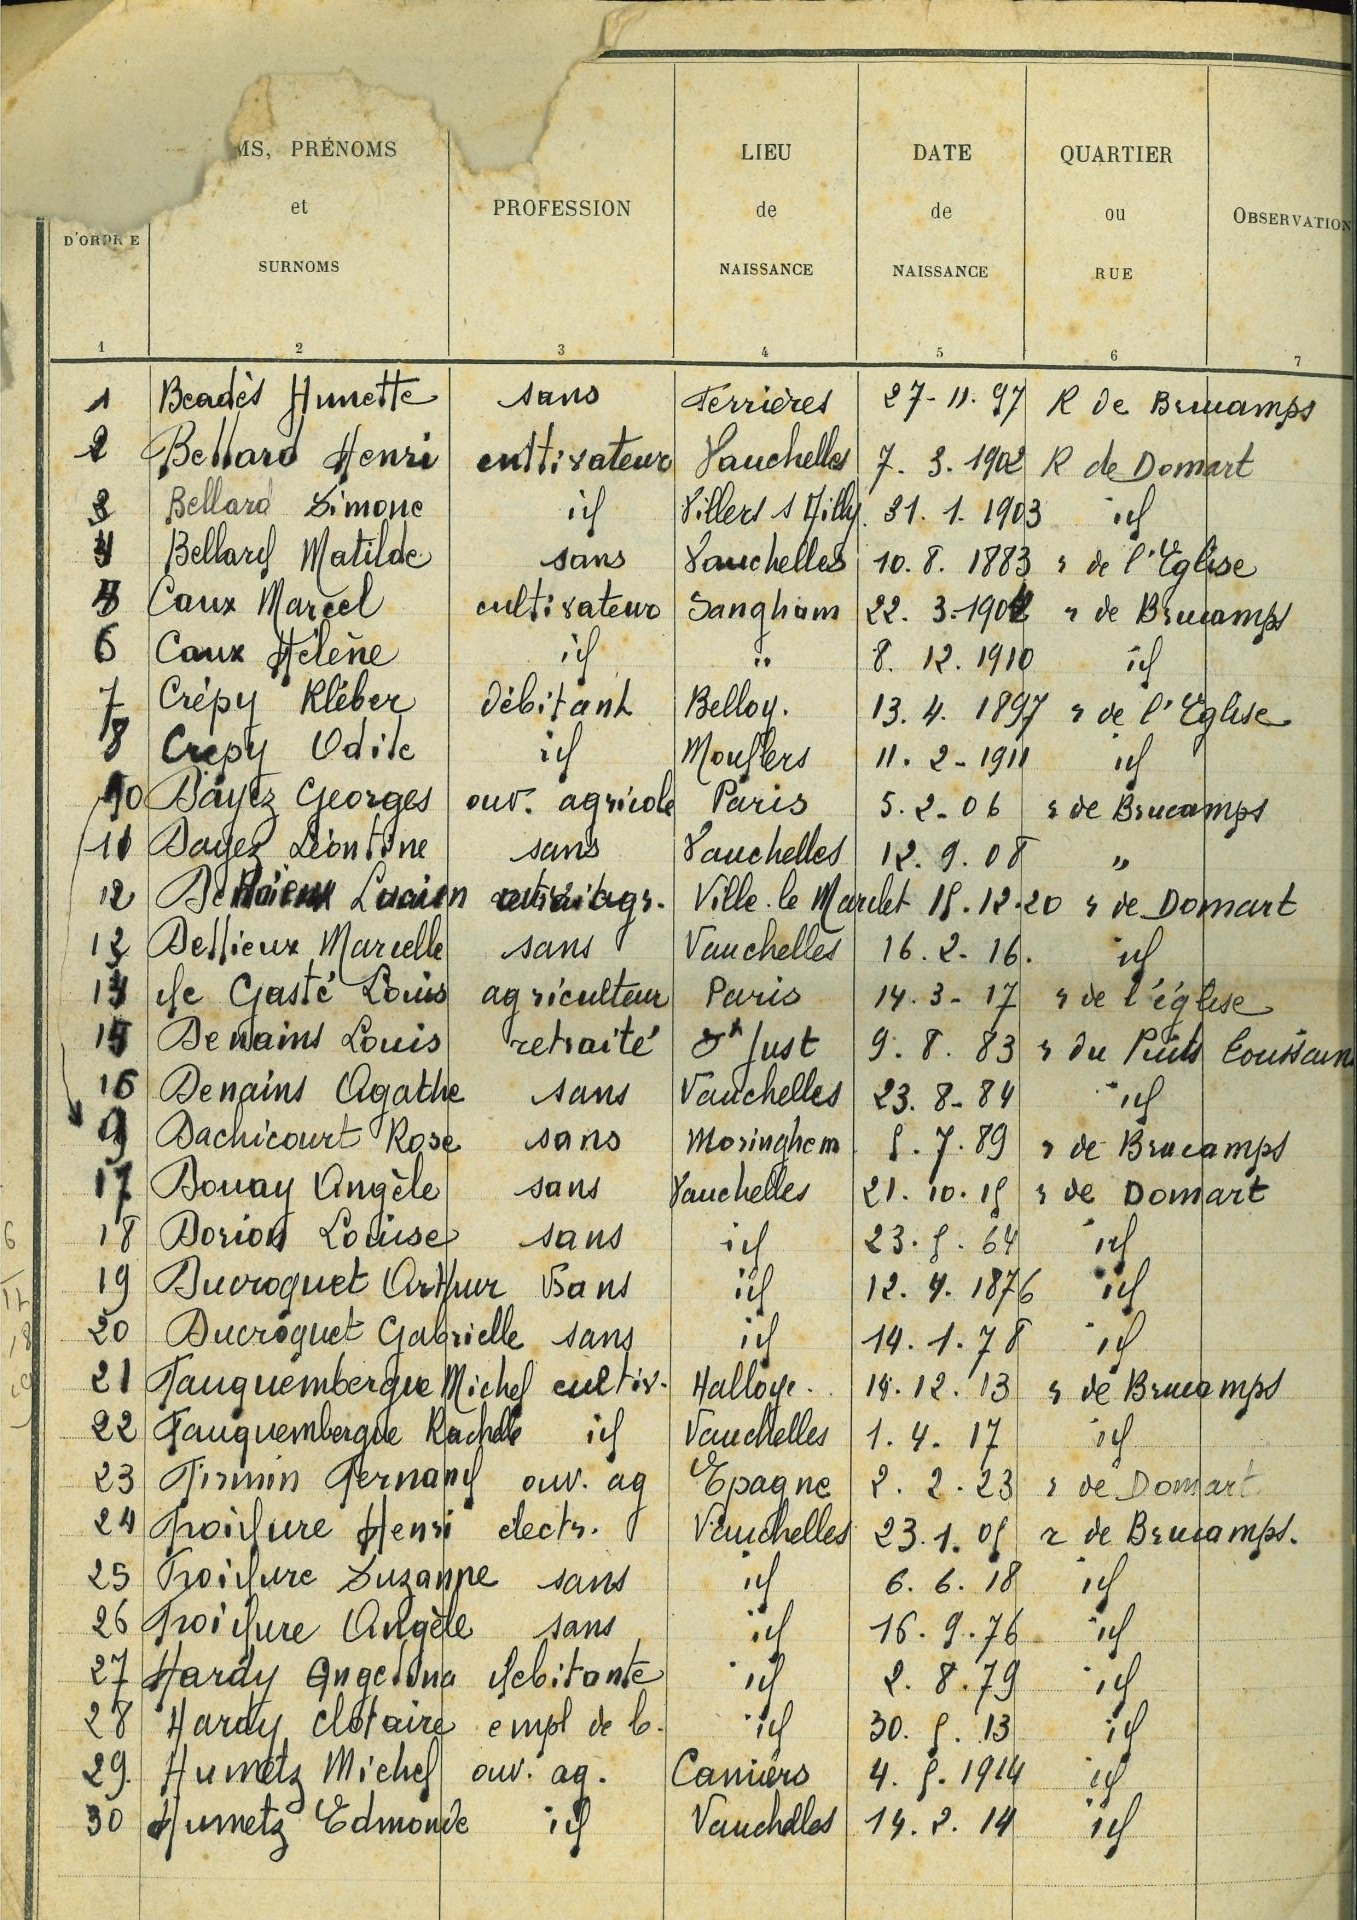 MS, PRÉNOMS
et
SURNOMS
D'ORDRE
PROFESSION
LIEU
de
NAISSANCE
DATE
de
NAISSANCE
QUARTIER
ou
RUE
OBSERVATION
1 2 3 4 5 6 7
1 Beadès Hunette sans Ferrières 27-11.97 R de Brucamps
2 Bellard Henri cultivateur Vauchelles 7. 3. 1902 R de Domart
3 Bellard Simone id Villers s Ailly 31. 1. 1903 id
4 Bellard Matilde sans Vauchelles 10. 8. 1883 r de l'Eglise
5 Caux Marcel cultivateur Sangham 22. 3-1902 r de Brucamps
6 Caux Hélène id " 8. 12. 1910 id
7 Crépy Kléber débitant Belloy. 13. 4. 1897 r de l'Eglise
8 Crepy Odile id Mouflers 11. 2-1911 id
10 Dayez Georges ouv. agricole Paris 5. 2-06 r de Brucamps
11 Dayez Léontine sans Vauchelles 12. 9. 08 "
12 Lucien Ville le Marclet 15.12.20 r de Domart
13 Dellieux Marcelle sans Vauchelles 16. 2-16. id
14 de Gasté Louis agriculteur Paris 14. 3-17 r de l'église
15 Denains Louis retraité St Just 9. 8. 83 r du Puits
16 Denains Agathe sans Vauchelles 23. 8-84 id
9 Dachicourt Rose sans Moringhem 5. 7. 89 r de Brucamps
17 Douay Angèle sans Vauchelles 21. 10. 15 r de Domart
18 Dorion Louise sans id 23. 5. 64 id
19 Ducroquet Arthur sans id 12. 4. 1876 id
20 Ducroquet Gabrielle sans id 14. 1. 78 id
21 Fauquembergue Michel cultiv. Halloye. 14. 12. 13 r de Brucamps
22 Fauquembergue Rachelle id Vauchelles 1. 4. 17 id
23 Firmin Fernand ouv. ag Epagne 2. 2. 23 r de Domart
24 Froidure Henri electr. Vauchelles 23. 1. 05 r de Brucamps.
25 Froidure Suzanne sans id 6. 6. 18 id
26 Froidure Angèle sans id 16. 9. 76 id
27 Hardy Angelina debitante id 2. 8. 79 id
28 Hardy Clotaire empl de id 30. 5. 13 id
29. Humetz Michel ouv. ag. Camiers 4. 5. 1914 id
30 Humetz Edmonde id Vauchelles 14. 2. 14 id